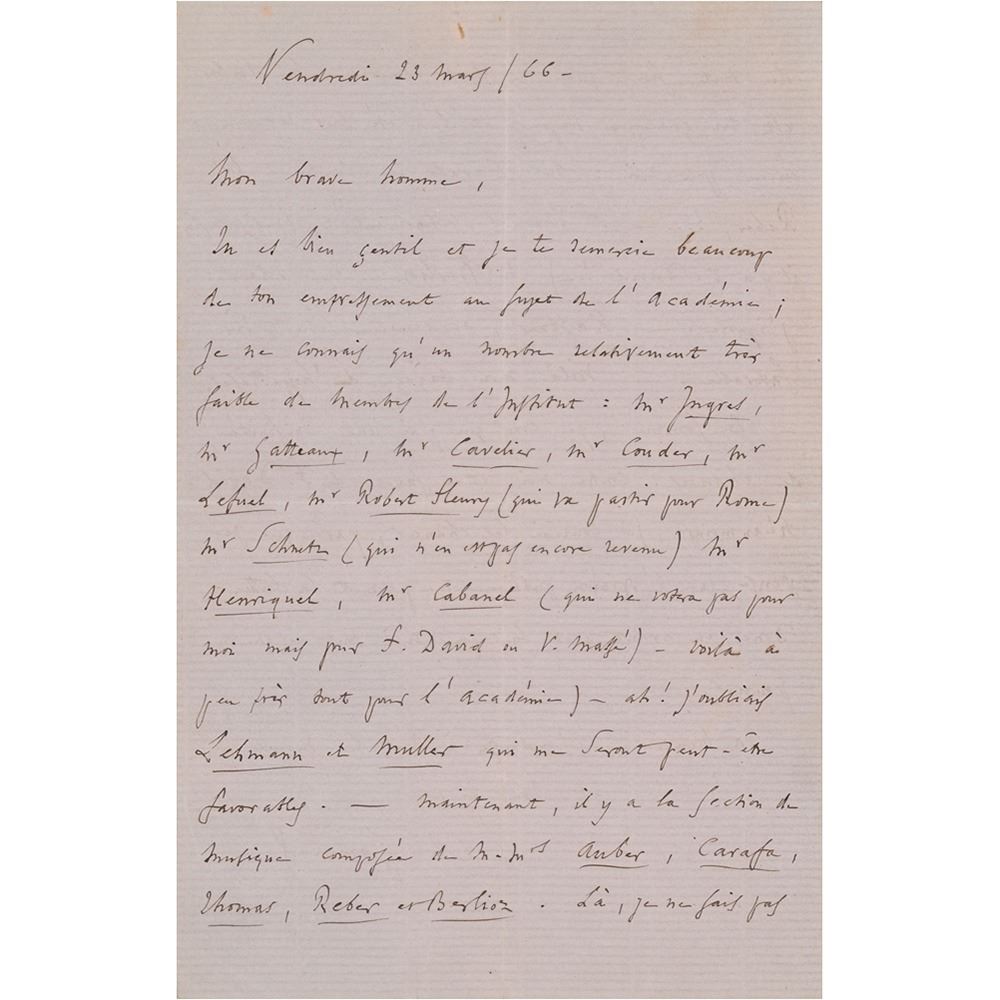 Vendredi 23 mars / 66 -
Mon brave homme,
Tu es bien gentil et je te remercie beaucoup
de ton empressement au sujet de l'Académie ;
je ne connais qu'un nombre relativement très
faible de membres de l'Institut : Mr Ingres,
Mr Gatteaux, Mr Cavelier, Mr Couder, Mr
Lefuel, Mr Robert Fleury (qui va partir pour Rome)
Mr Schnetz (qui n'en est pas encore revenu) Mr
Henriquel, Mr Cabanel (qui ne votera pas pour
moi mais pour F. David ou V. Massé) - voilà à
peu près tout pour l'Académie) - ah ! j'oubliais
Lehmann et Muller qui me seront peut-être
favorables. — Maintenant, il y a la section de
musique composée de M.Mrs Auber, Carafa,
Thomas, Reber et Berlioz. Là, je ne sais pas